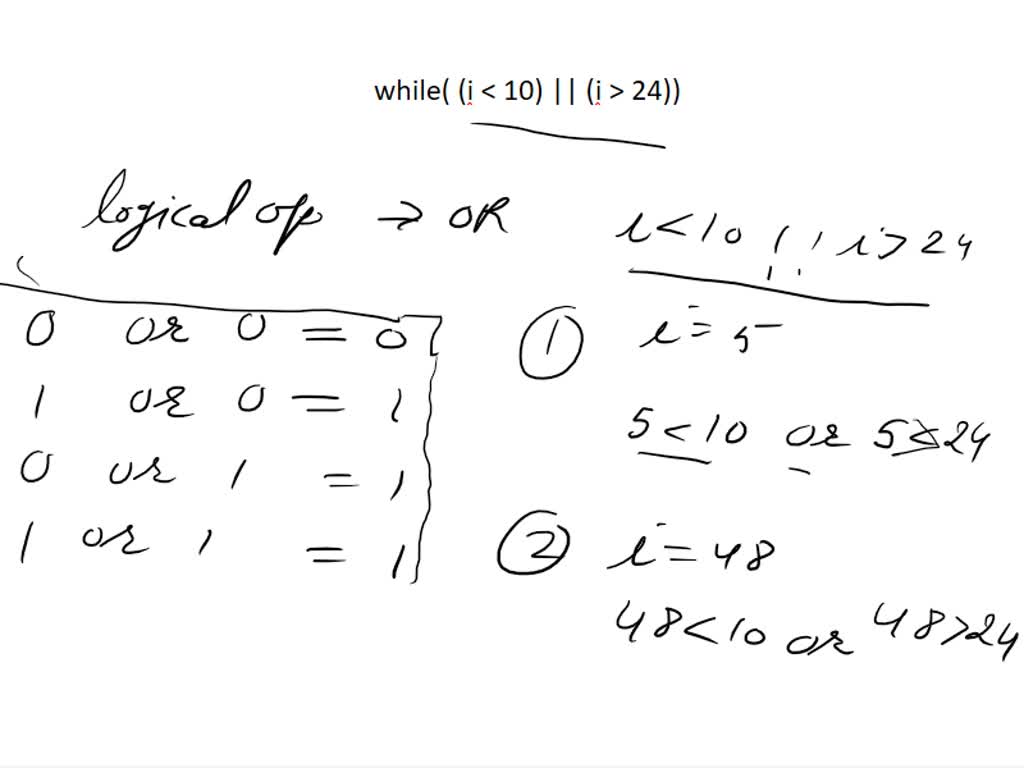 while( (i < 10) || (i > 24))
logical op → OR
i < 10 || i > 24
0 or 0 = 0
1 or 0 = 1
0 or 1 = 1
1 or 1 = 1
1 i = 5
5 < 10 or 5 > 24
2 i = 48
48 < 10 or 48 > 24